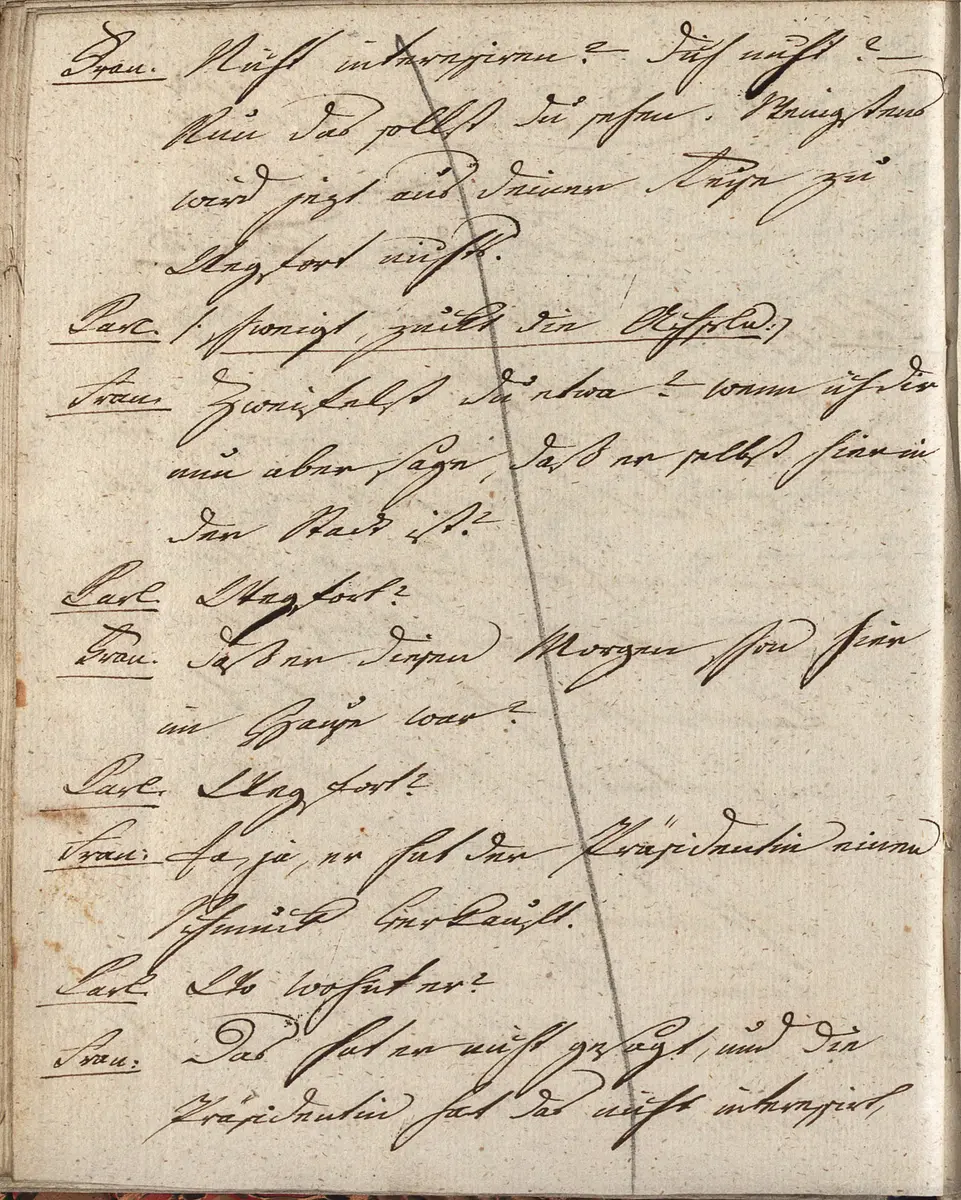 Fran. Nicht interessiren? Dich nicht? –
Nun das sollst du sehen. Wenigstens
wird jezt aus deiner Reise zu
Wegfort nichts.
Carl. /: schweigt, zuckt die Achseln :/
Fran. Zweifelst du etwa? wenn ich dir
nun aber sage, daß er selbst hier in
der Stadt ist?
Carl. Wegfort?
Fran. daß er diesen Morgen schon hier
im Hause war?
Carl. Wegfort?
Fran: Ja, ja, er hat der Präsidentin einen
Schmuck verkauft.
Carl. Wo wohnt er?
Fran: Das hat er nicht gesagt, und die
Präsidentin hat das nicht interessirt,